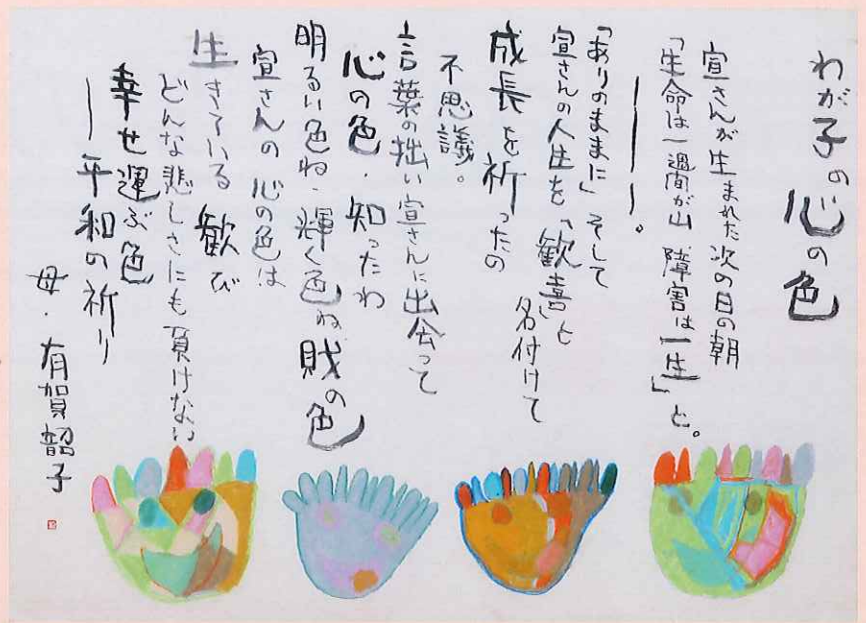 わが子の心の色
宣さんが生まれた次の日の朝
「生命は一週間が山 障害は一生」と。
―――。
「ありのままに」そして
宣さんの人生を「歓喜」と
名付けて
成長を祈ったの
不思議。
言葉の拙い宣さんに出会って
心の色・知ったわ
明るい色ね・輝く色ね・財の色
宣さんの心の色は
生きている歓び
どんな悲しさにも負けない
幸せ運ぶ色
―平和の祈り
母・有賀韶子